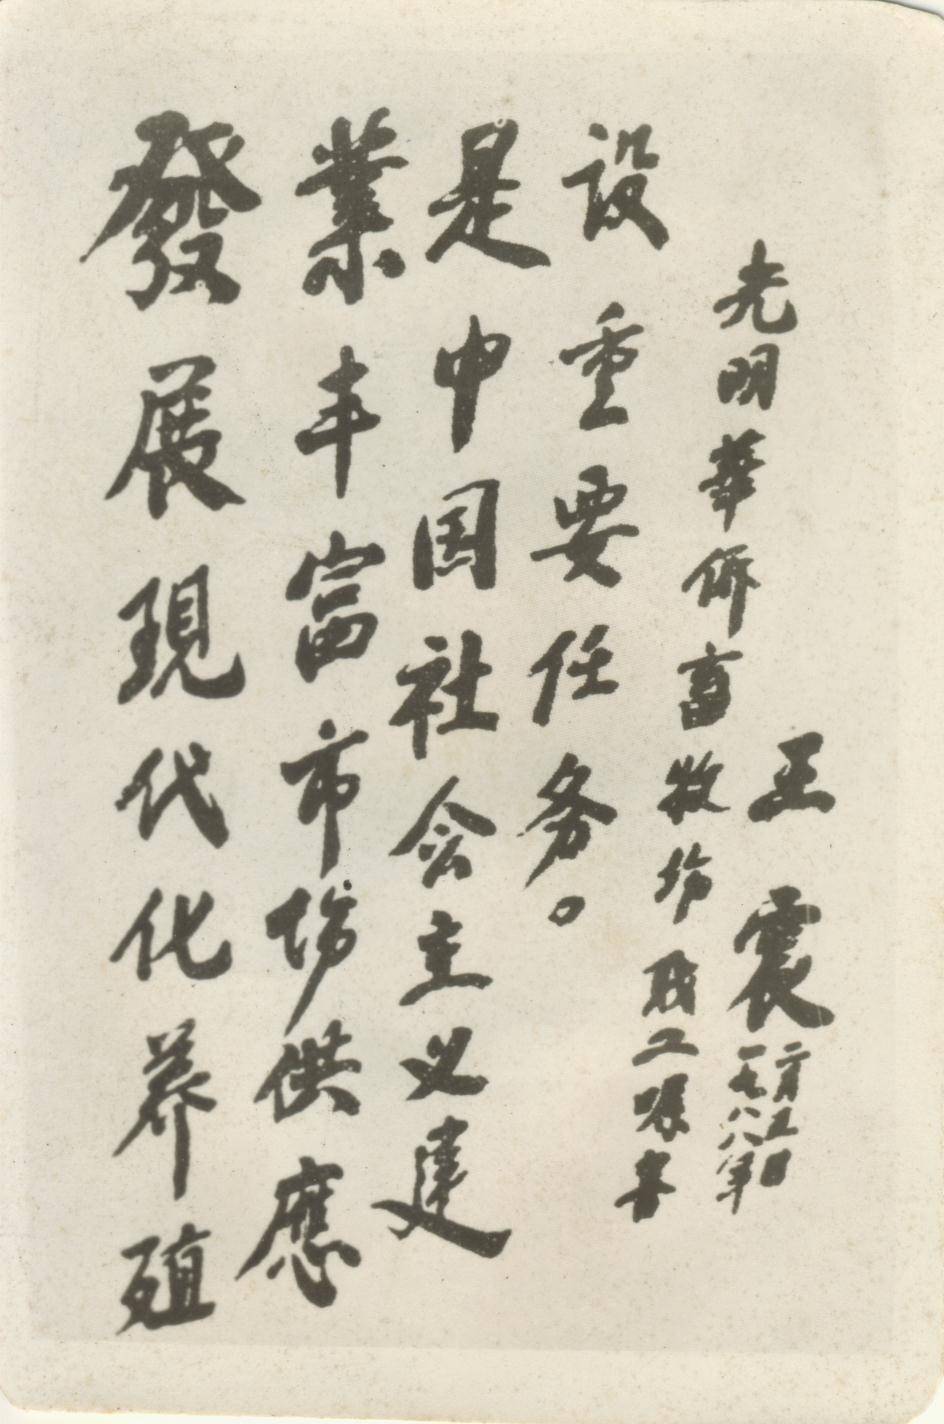 發展現代化养殖
業丰富市场供應
是中国社会主义建
设重要任务。
光明華侨畜牧场职工嘱书
王震
一九八八年
二月五日